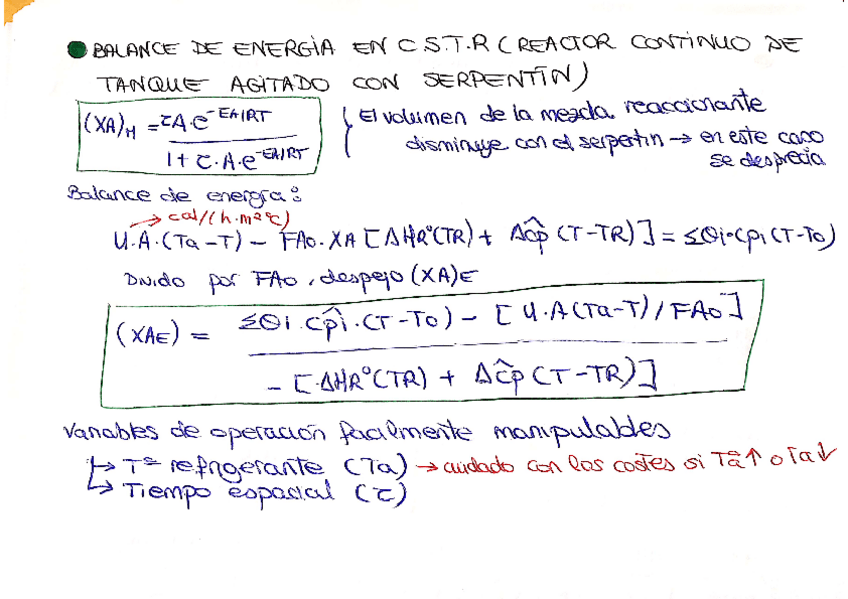 ● BALANCE DE ENERGÍA EN C.S.T.R (REACTOR CONTINUO DE
TANQUE AGITADO CON SERPENTÍN)
(XA)M = τA·e^-EA/RT / 1 + τ·A·e^-EA/RT
El volumen de la mezcla reaccionante
disminuye con el serpentin → en este caso
se desprecia
Balance de energía:
→ cal/(h·m²ºC)
U·A·(Ta-T) - FA0·XA [ΔHRº(TR) + ΔĈp (T-TR)] = ≤Θi·Cpi (T-T0)
Divido por FA0, despejo (XA)E
(XAE) = ≤Θi·Ĉpi·(T-T0) - [U·A(Ta-T)/FA0] / - [·ΔHRº(TR) + ΔĈp (T-TR)]
Variables de operación facilmente manipulables
↳ Tª refrigerante (Ta) → cuidado con los costes si Ta↑ o Ta↓
↳ Tiempo espacial (τ)